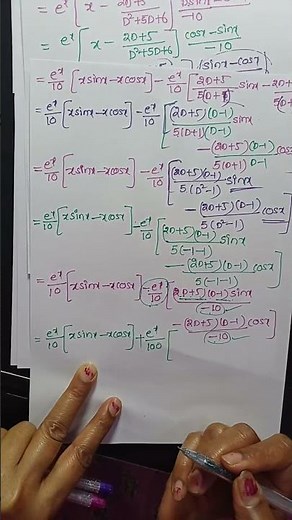 = eˣ [x - 2D+5/D²+5D+6] Dsinx/-10
= eˣ [x - 2D+5/D²+5D+6] cosx-sinx/-10
(sinx-cosx)
= eˣ/10 [xsinx-xcosx] - eˣ/10 [2D+5/5(D+1) sinx - 2D+
= eˣ/10 [xsinx-xcosx] - eˣ/10 [(2D+5)(D-1)/5(D+1)(D-1) sinx
- (2D+5)(D-1)/5(D+1)D-1 cosx
= eˣ/10 [xsinx-xcosx] - eˣ/10 [(2D+5)(D-1)/5(D²-1) sinx
- (2D+5)(D-1)/5(D²-1) cosx]
= eˣ/10 [xsinx-xcosx] - eˣ/10 [(2D+5)(D-1)/5(-1-1) sinx
- (2D+5)(D-1)/5(-1-1) cosx]
= eˣ/10 [xsinx-xcosx] - eˣ/10 [(2D+5)(D-1)sinx/-10
- (2D+5)(D-1)cosx/-10]
= eˣ/10 [xsinx-xcosx] + eˣ/100 [